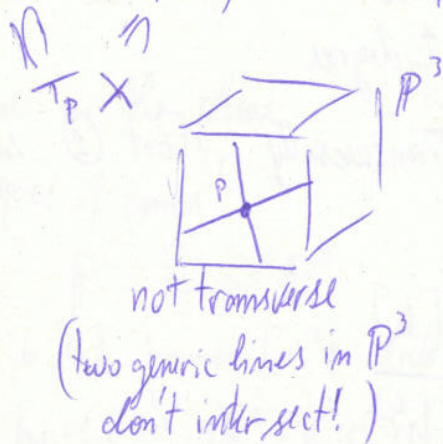 T_p X
ℙ³
p
not transverse
(two generic lines in ℙ³
don't intersect!)